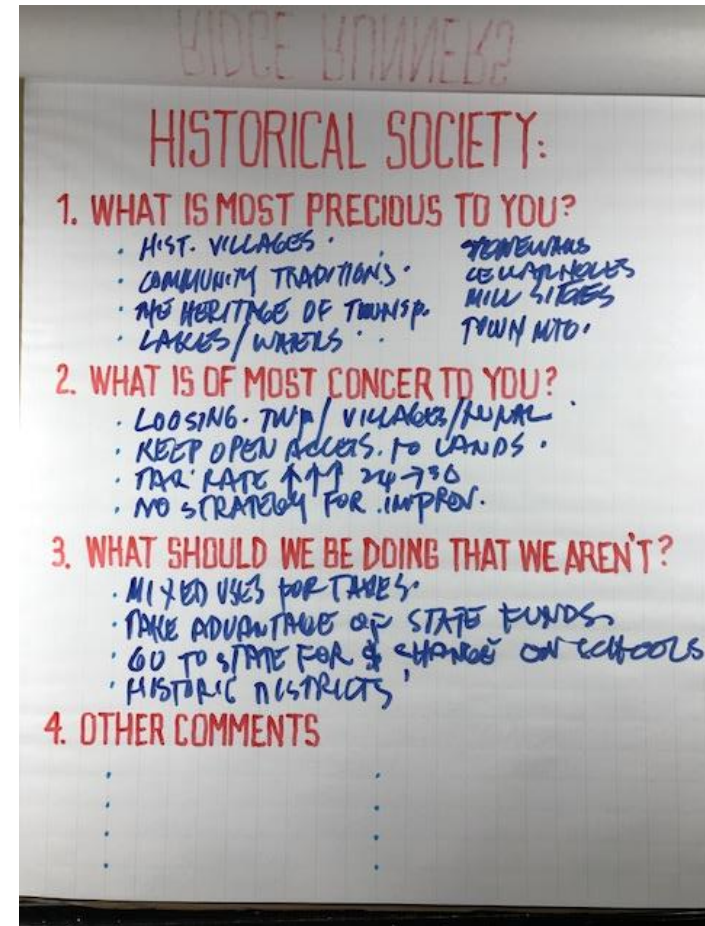 RIDGE RUNNERS
HISTORICAL SOCIETY:
1. WHAT IS MOST PRECIOUS TO YOU?
· HIST. VILLAGES · STONEWALLS
· COMMUNITY TRADITIONS · CELLARHOLES
· THE HERITAGE OF TOWNSP. MILL SITES
· LAKES/WATERS · TOWN
2. WHAT IS OF MOST CONCER TO YOU?
· LOOSING · TWP/VILLAGES/RURAL
· KEEP OPEN ACCESS TO LANDS ·
· TAX RATE ↑↑↑ 24→30
· NO STRATEGY FOR IMPROV.
3. WHAT SHOULD WE BE DOING THAT WE AREN'T?
· MIXED USES FOR TAXES ·
· TAKE ADVANTAGE OF STATE FUNDS
· GO TO STATE FOR $ CHANGE ON SCHOOLS
· HISTORIC DISTRICTS
4. OTHER COMMENTS